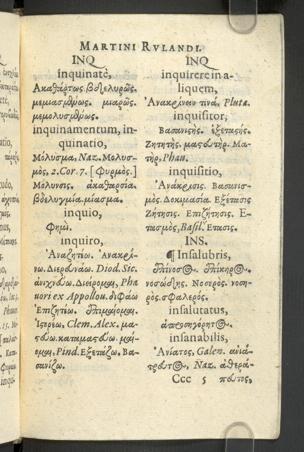 MARTINI RVLANDI.
INQ
inquinatè,
Ακαθάρτως βδελυρῶς.
μεμιασμένως. μιαρῶς.
μεμολυσμένως.
inquinamentum, in-
quinatio,
Μόλυσμα, Naz. Μολυσ-
μός, 2. Cor. 7. [Φυρμός.]
Μόλυνσις. ἀκαθαρσία.
βδελυγμία. μίασμα.
inquio,
Φημί.
inquiro,
Ἀναζητέω. Ἀνακρί-
νω. Διερευνάω. Diod. Sic.
ἀνιχνεύω. Διείρομαι, Pha
uori ex Appollon. διφάω
Ἐπιζητέω.
Ἱστορέω, Clem. Alex. μα-
Pind. Εξετάζω, Βα-
σανίζω.
INQ
inquirere in a-
liquem,
Ἀνακρίνειν τινά. Plut.
inquisitor,
Βασανιστής. ἐξεταστής.
Ζητητής. μαστήρ. Μα-
τήρ, Phau.
inquisitio,
Ἀνάκρισις. Βασανισ-
μός. Δοκιμασία. Εξέτασις
Ζήτησις. Επιζήτησις. Ε-
τασμός, Basil. Ετασις.
INS.
¶ Insalubris,
Ἐπίνοσος. Ἐπίκηρος.
νοσώδης. Νοσερός. νοση-
ρός. σφαλερός.
insalutatus,
ἀπροσηγόρητος.
insanabilis,
Ἀνίατος, Galen. ἀνιά-
τρευτος, Naz. ἀθερά-
Ccc 5 πευτος,